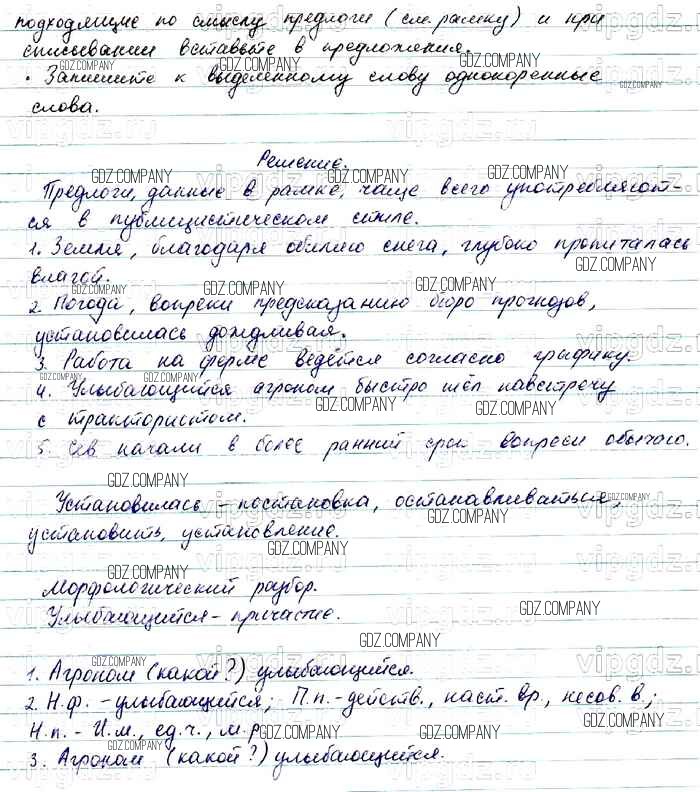 подходящие по смыслу предлоги (см. рамку) и при
списывании вставьте в предложения.
• Запишите к выделенному слову однокоренные
слова.
Решение.
Предлоги, данные в рамке, чаще всего употребляют-
ся в публицистическом стиле.
1. Земля, благодаря обилию снега, глубоко пропиталась
влагой.
2. Погода, вопреки предсказанию бюро прогнозов,
установилась дождливая.
3. Работа на ферме ведётся согласно графику.
4. Улыбающийся агроном быстро шёл навстречу
с трактористом.
5. Сев начали в более ранний срок вопреки обычаю.
Установилась - постановка, останавливаться,
установить, установление.
Морфологический разбор.
Улыбающийся - причастие.
1. Агроном (какой?) улыбающийся.
2. Н.ф. - улыбающийся; П.п. - действ., наст. вр., несов. в.;
Н.п. - И.п., ед.ч., м.р.
3. Агроном (какой?) улыбающийся.
GDZ.COMPANY
vipgdz.ru